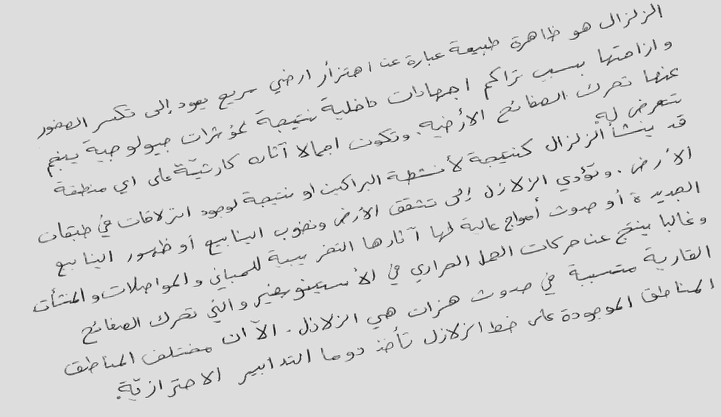 الزلزال هو ظاهرة طبيعة عبارة عن اهتزاز ارضي سريع يعود إلى تكسر الصخور
وازاحتها بسبب تراكم اجهادات داخلية نتيجة لمؤثرات جيولوجية ينجم
عنها تحرك الصفائح الأرضية. وتكون اجمالا آثاره كارثيّة على اي منطقة
تتعرض له
قد ينشأ الزلزال كنتيجة لأنشطة البراكين او نتيجة لوجود انزلاقات في طبقات
الأرض. وتؤدي الزلازل إلى تشقق الأرض ونضوب الينابيع أو ظهور الينابيع
الجديدة أو حدوث أمواج عالية لها آثارها التخريبية للمباني والمواصلات والمنشآت
وغالبا ينتج عن حركات الحمل الحراري في الأسينوسفير والتي تحرك الصفائح
القارية متسببة في حدوث هزات هي الزلازل. الآن مختلف المناطق
المناطق الموجودة على خط الزلازل تأخذ دوما التدابير الاحترازيّة.